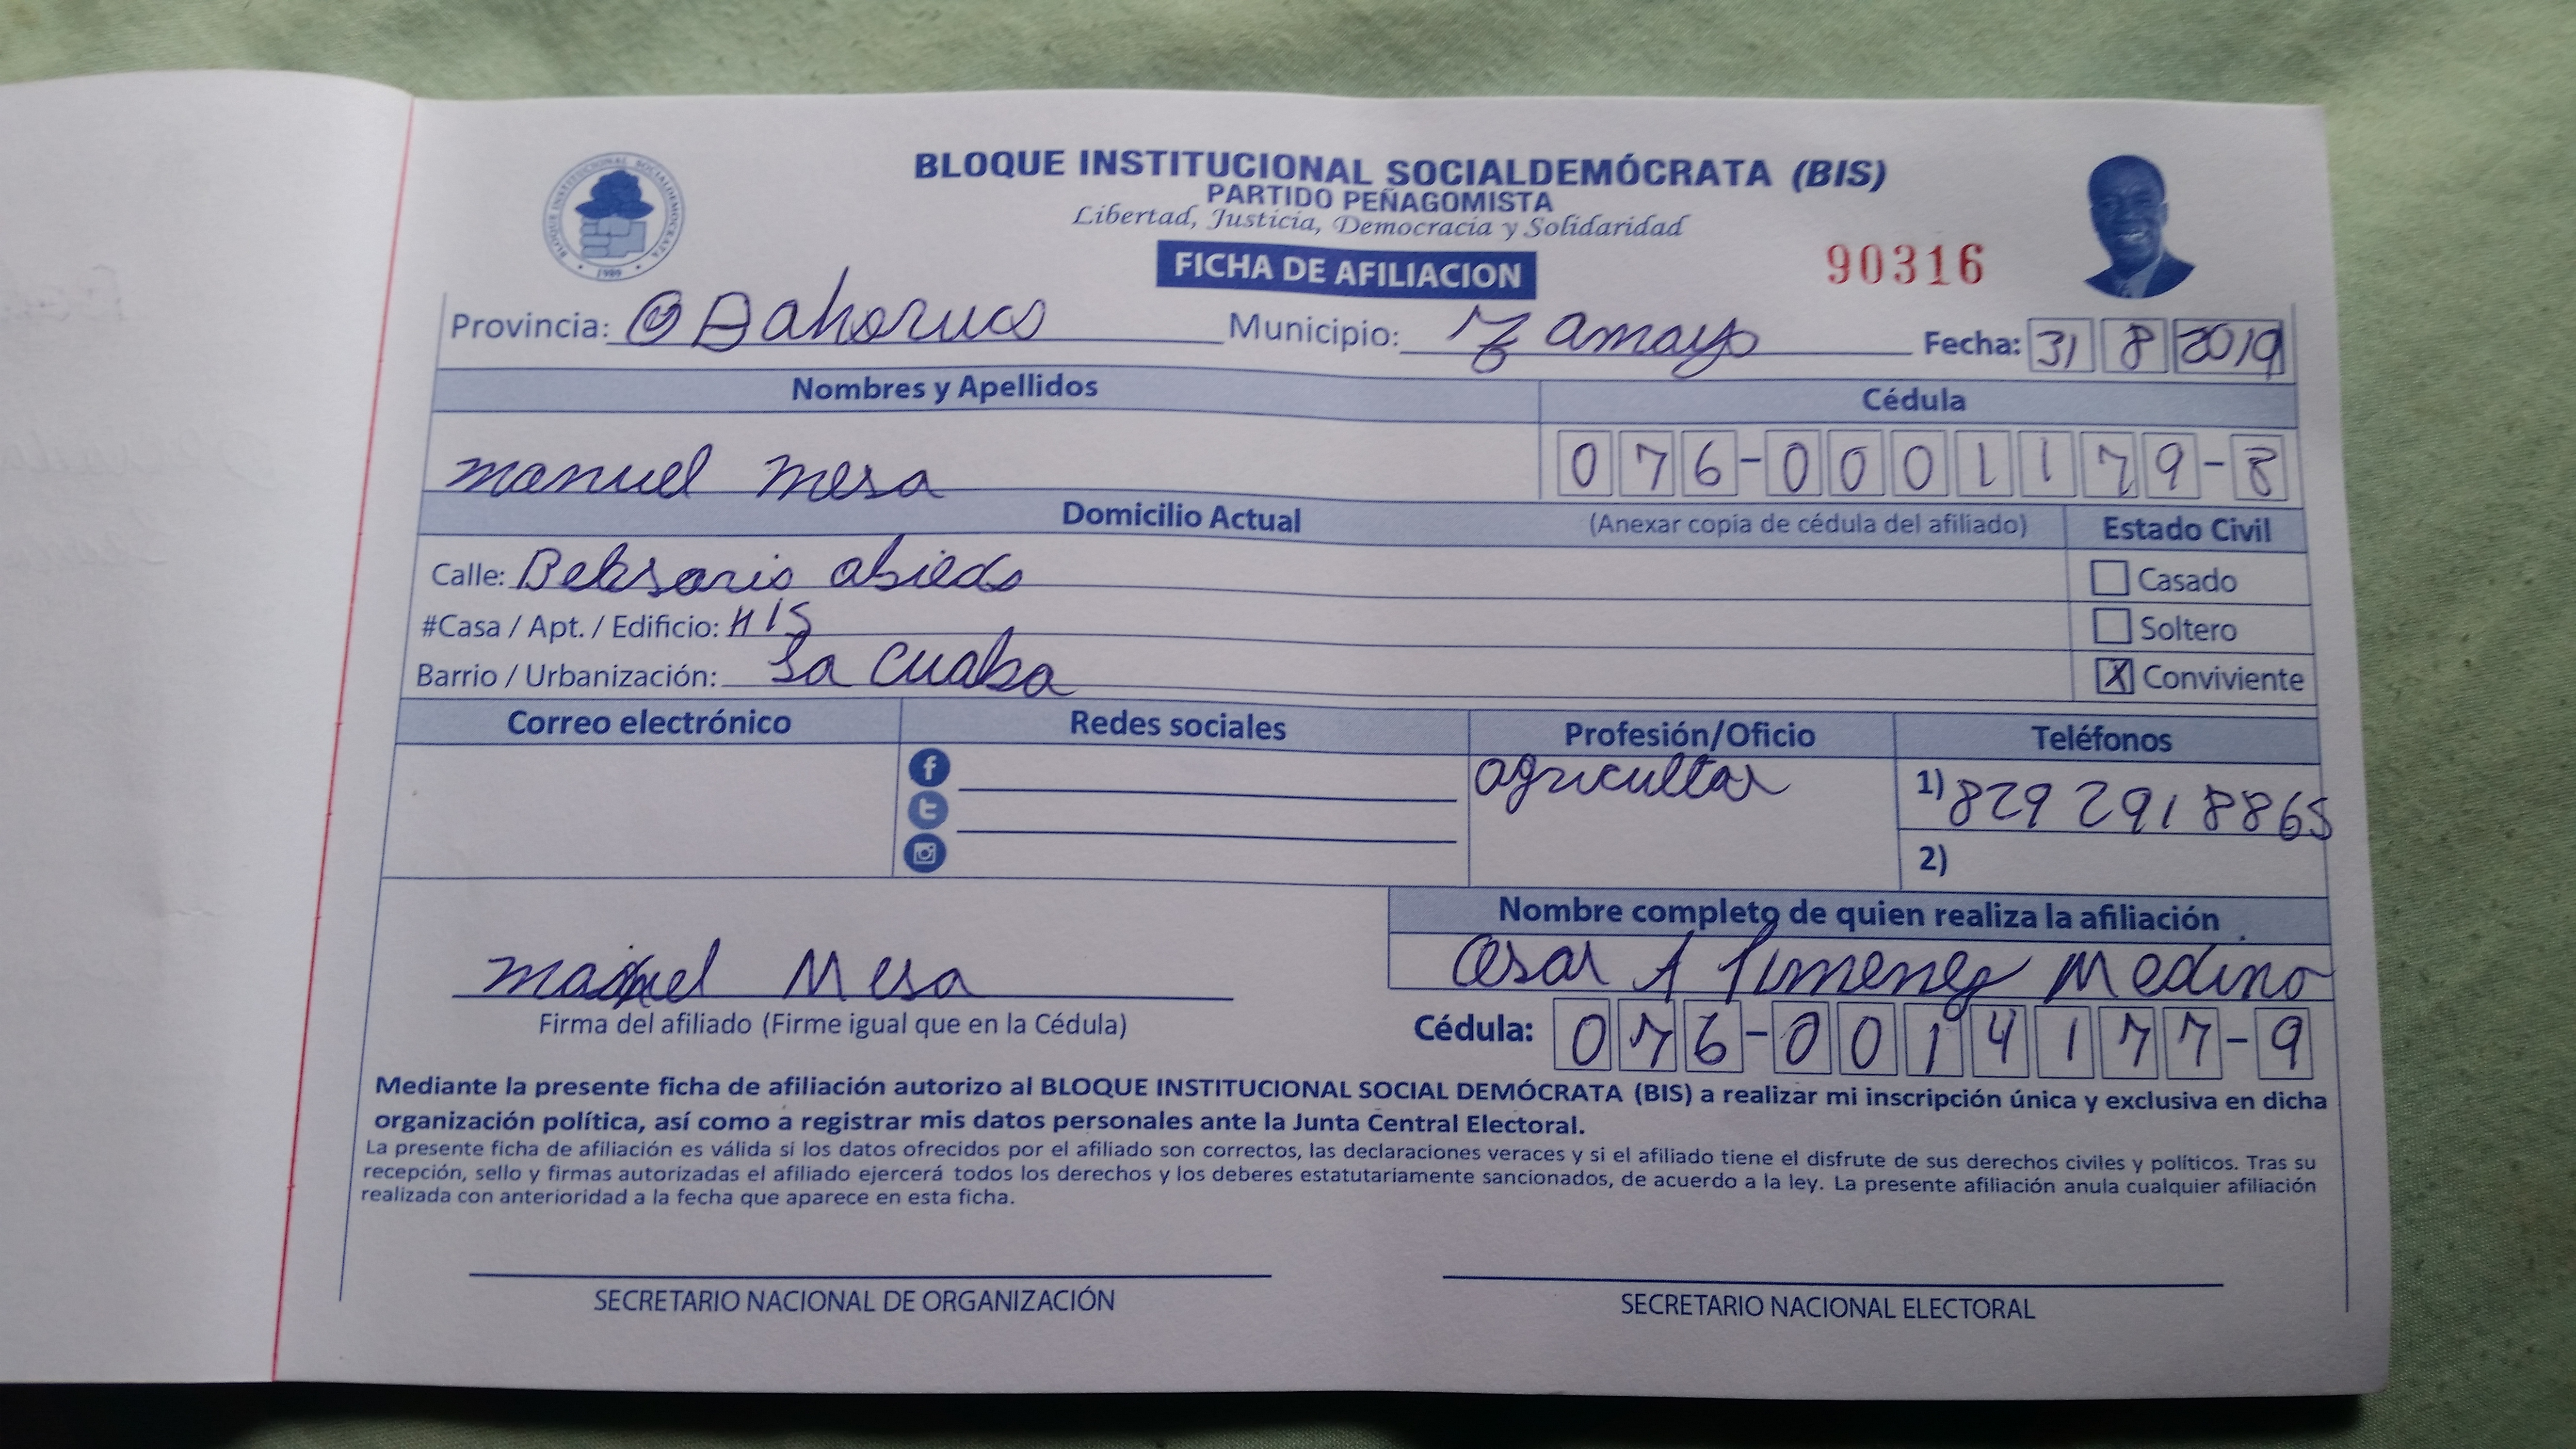 BLOQUE INSTITUCIONAL SOCIALDEMÓCRATA (BIS)
PARTIDO PEÑAGOMISTA
Libertad, Justicia, Democracia y Solidaridad
BLOQUE INSTITUCIONAL SOCIALDEMOCRATA
1989
FICHA DE AFILIACION
90316
Provincia: Bahoruco Municipio: Tamayo Fecha: 31 8 2019
Nombres y Apellidos Cédula
manuel mesa 076-0001179-8
Domicilio Actual (Anexar copia de cédula del afiliado) Estado Civil
Calle: Casado
#Casa / Apt. / Edificio: # 15 Soltero
Barrio / Urbanización: La Cuaba X Conviviente
Correo electrónico Redes sociales Profesión/Oficio Teléfonos
agricultor 1) 829 291 8865
2)
Nombre completo de quien realiza la afiliación
manuel Mesa Cesar A Jimenez Medina
Firma del afiliado (Firme igual que en la Cédula) Cédula: 076-0014177-9
Mediante la presente ficha de afiliación autorizo al BLOQUE INSTITUCIONAL SOCIAL DEMÓCRATA (BIS) a realizar mi inscripción única y exclusiva en dicha
organización política, así como a registrar mis datos personales ante la Junta Central Electoral.
La presente ficha de afiliación es válida si los datos ofrecidos por el afiliado son correctos, las declaraciones veraces y si el afiliado tiene el disfrute de sus derechos civiles y políticos. Tras su
recepción, sello y firmas autorizadas el afiliado ejercerá todos los derechos y los deberes estatutariamente sancionados, de acuerdo a la ley. La presente afiliación anula cualquier afiliación
realizada con anterioridad a la fecha que aparece en esta ficha.
SECRETARIO NACIONAL DE ORGANIZACIÓN SECRETARIO NACIONAL ELECTORAL